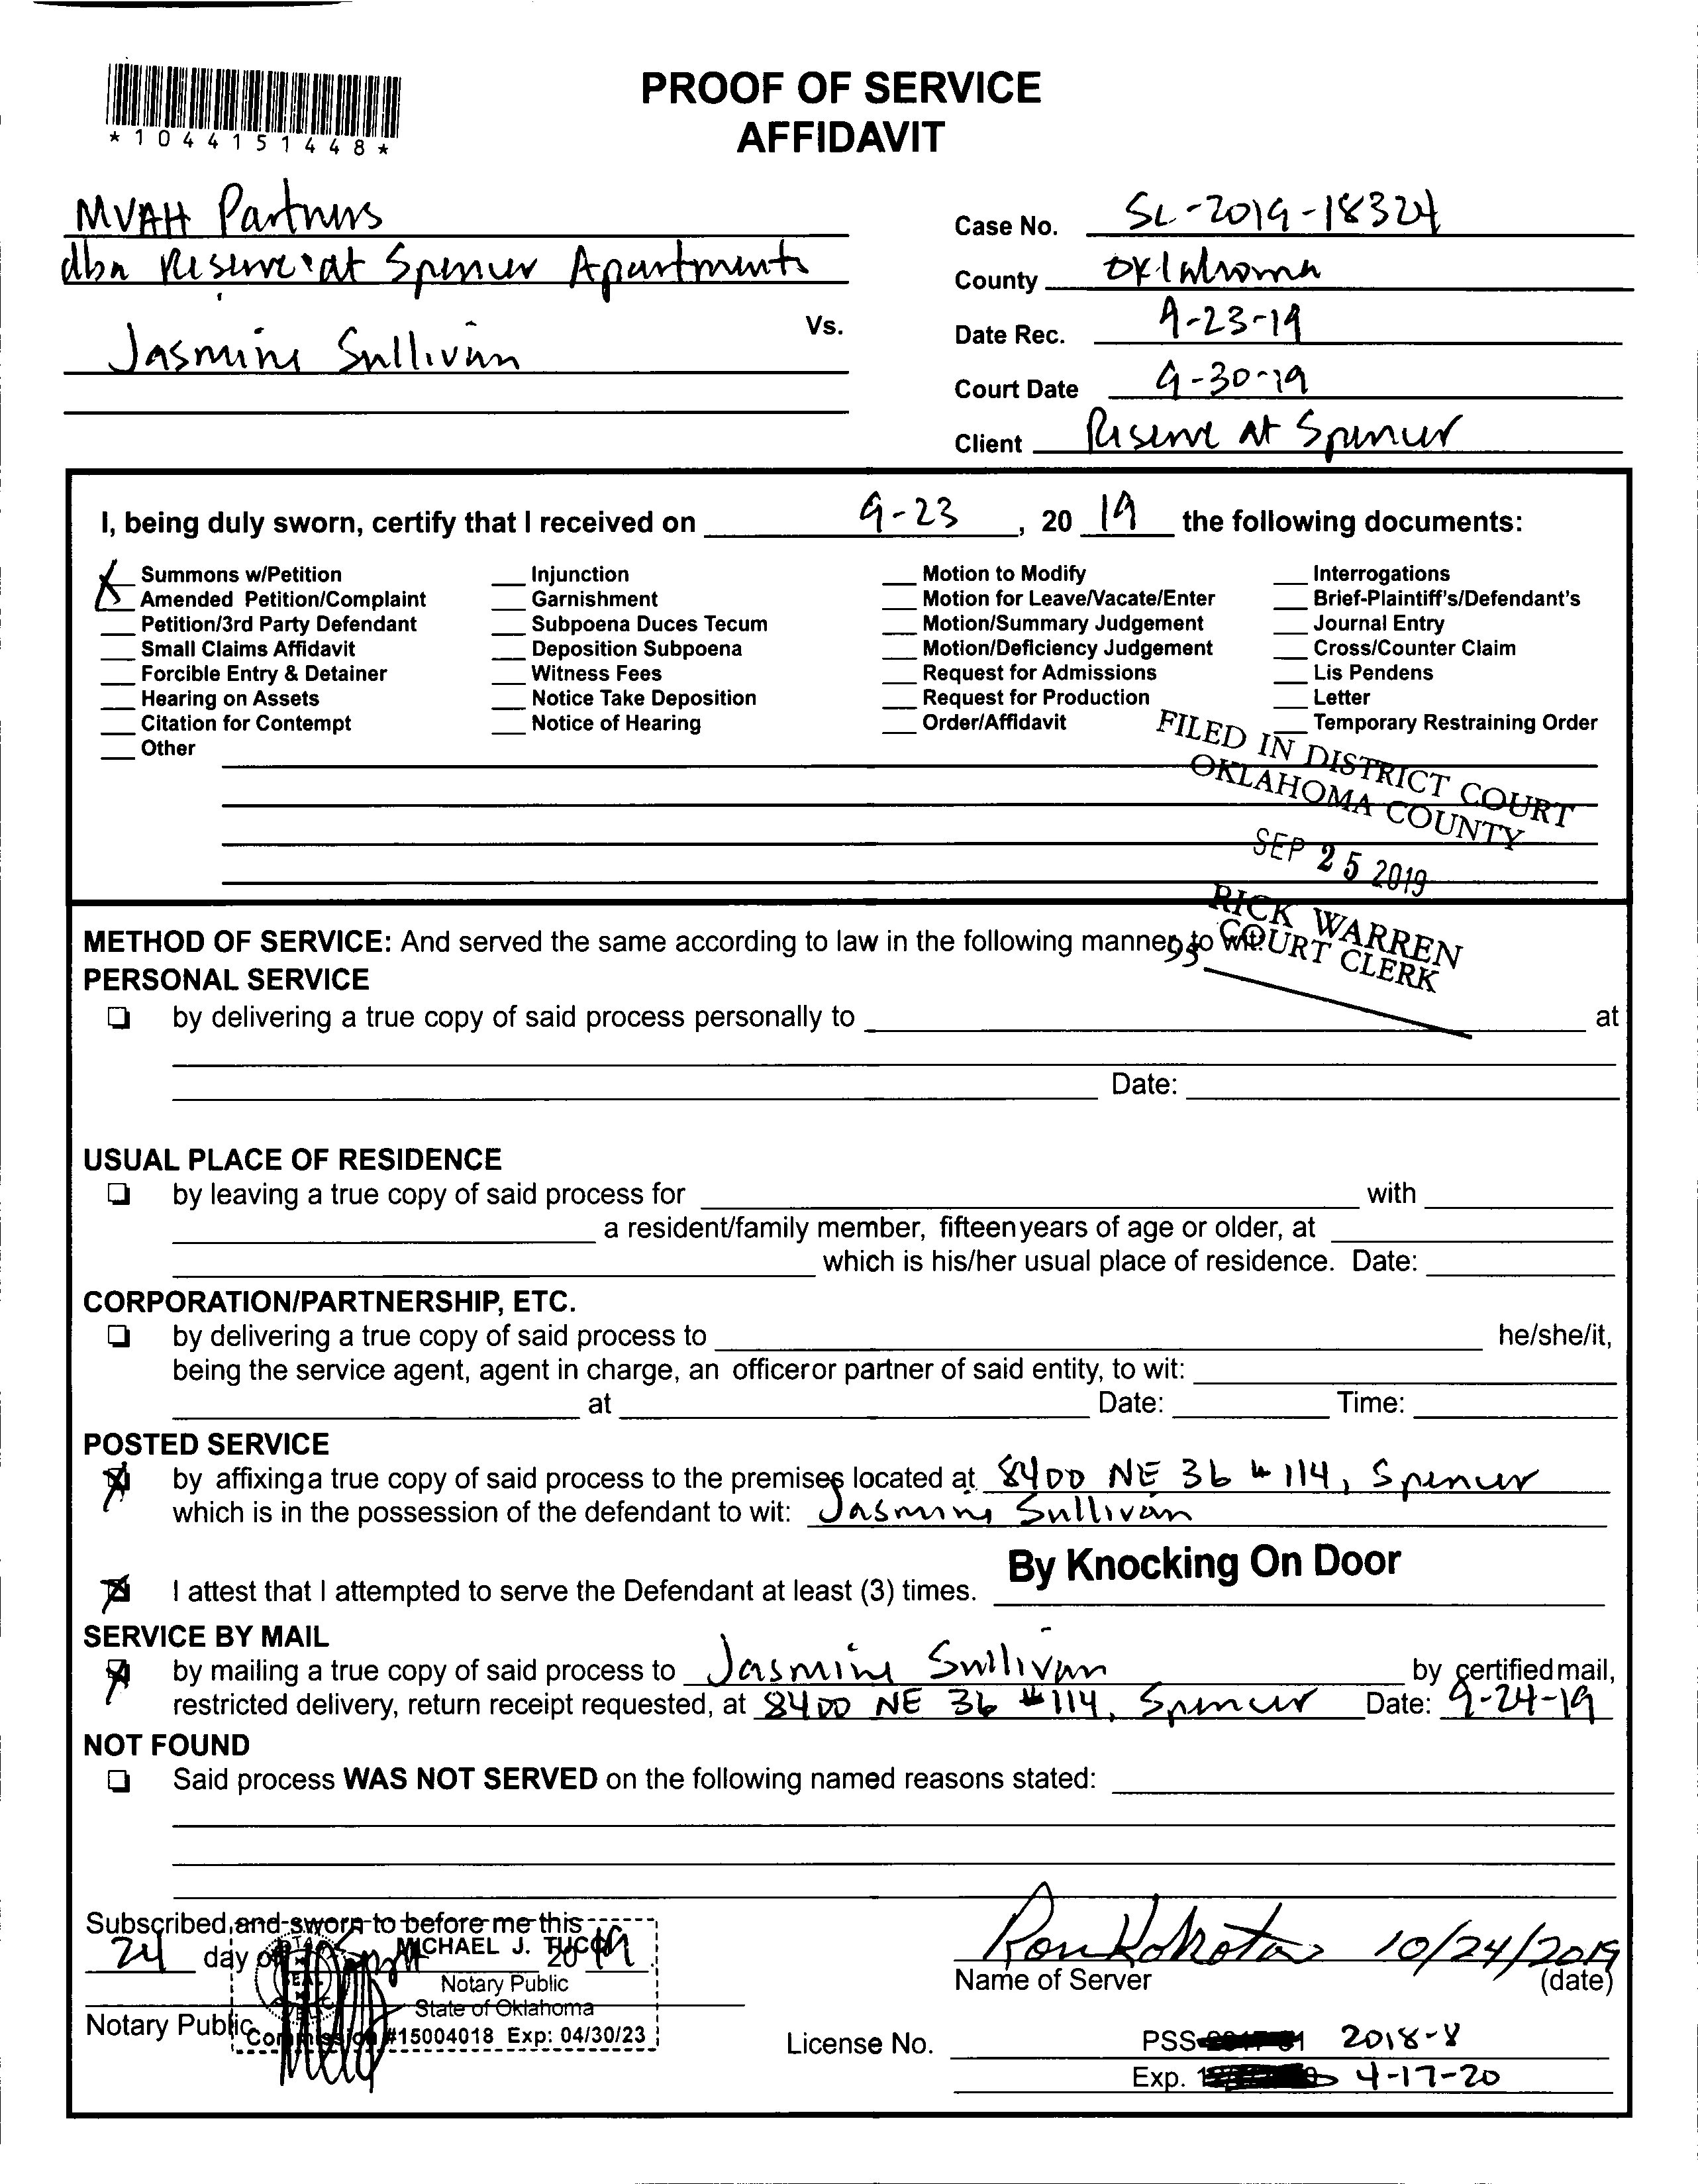 PROOF OF SERVICE
AFFIDAVIT
*1044151448*
MVAH Partners
dba Reserve at Spencer Apartments
Vs.
Jasmine Sullivan
Case No. SC-2019-18324
County Oklahoma
Date Rec. 9-23-19
Court Date 9-30-19
Client Reserve at Spencer
I, being duly sworn, certify that I received on 9-23, 20 19 the following documents:
X Summons w/Petition
Amended Petition/Complaint
Petition/3rd Party Defendant
Small Claims Affidavit
Forcible Entry & Detainer
Hearing on Assets
Citation for Contempt
Other
Injunction
Garnishment
Subpoena Duces Tecum
Deposition Subpoena
Witness Fees
Notice Take Deposition
Notice of Hearing
Motion to Modify
Motion for Leave/Vacate/Enter
Motion/Summary Judgement
Motion/Deficiency Judgement
Request for Admissions
Request for Production
Order/Affidavit
Interrogations
Brief-Plaintiff's/Defendant's
Journal Entry
Cross/Counter Claim
Lis Pendens
Letter
Temporary Restraining Order
FILED IN DISTRICT COURT
OKLAHOMA COUNTY
SEP 25 2019
RICK WARREN
COURT CLERK
95
METHOD OF SERVICE: And served the same according to law in the following manner, to wit:
PERSONAL SERVICE
by delivering a true copy of said process personally to at
Date:
USUAL PLACE OF RESIDENCE
by leaving a true copy of said process for with
a resident/family member, fifteen years of age or older, at
which is his/her usual place of residence. Date:
CORPORATION/PARTNERSHIP, ETC.
by delivering a true copy of said process to he/she/it,
being the service agent, agent in charge, an officer or partner of said entity, to wit:
at Date: Time:
POSTED SERVICE
X by affixing a true copy of said process to the premises located at 8400 NE 36 # 114, Spencer
which is in the possession of the defendant to wit: Jasmine Sullivan
X I attest that I attempted to serve the Defendant at least (3) times. By Knocking On Door
SERVICE BY MAIL
X by mailing a true copy of said process to Jasmine Sullivan by certified mail,
restricted delivery, return receipt requested, at 8400 NE 36 #114, Spencer Date: 9-24-19
NOT FOUND
Said process WAS NOT SERVED on the following named reasons stated:
Subscribed and sworn to before me this
24 day of Sept 20 19
Notary Public
MICHAEL J. TUCCI
Notary Public
State of Oklahoma
Commission #15004018 Exp: 04/30/23
10/24/2019
Name of Server (date)
License No. PSS- 2018-8
Exp. 4-17-20